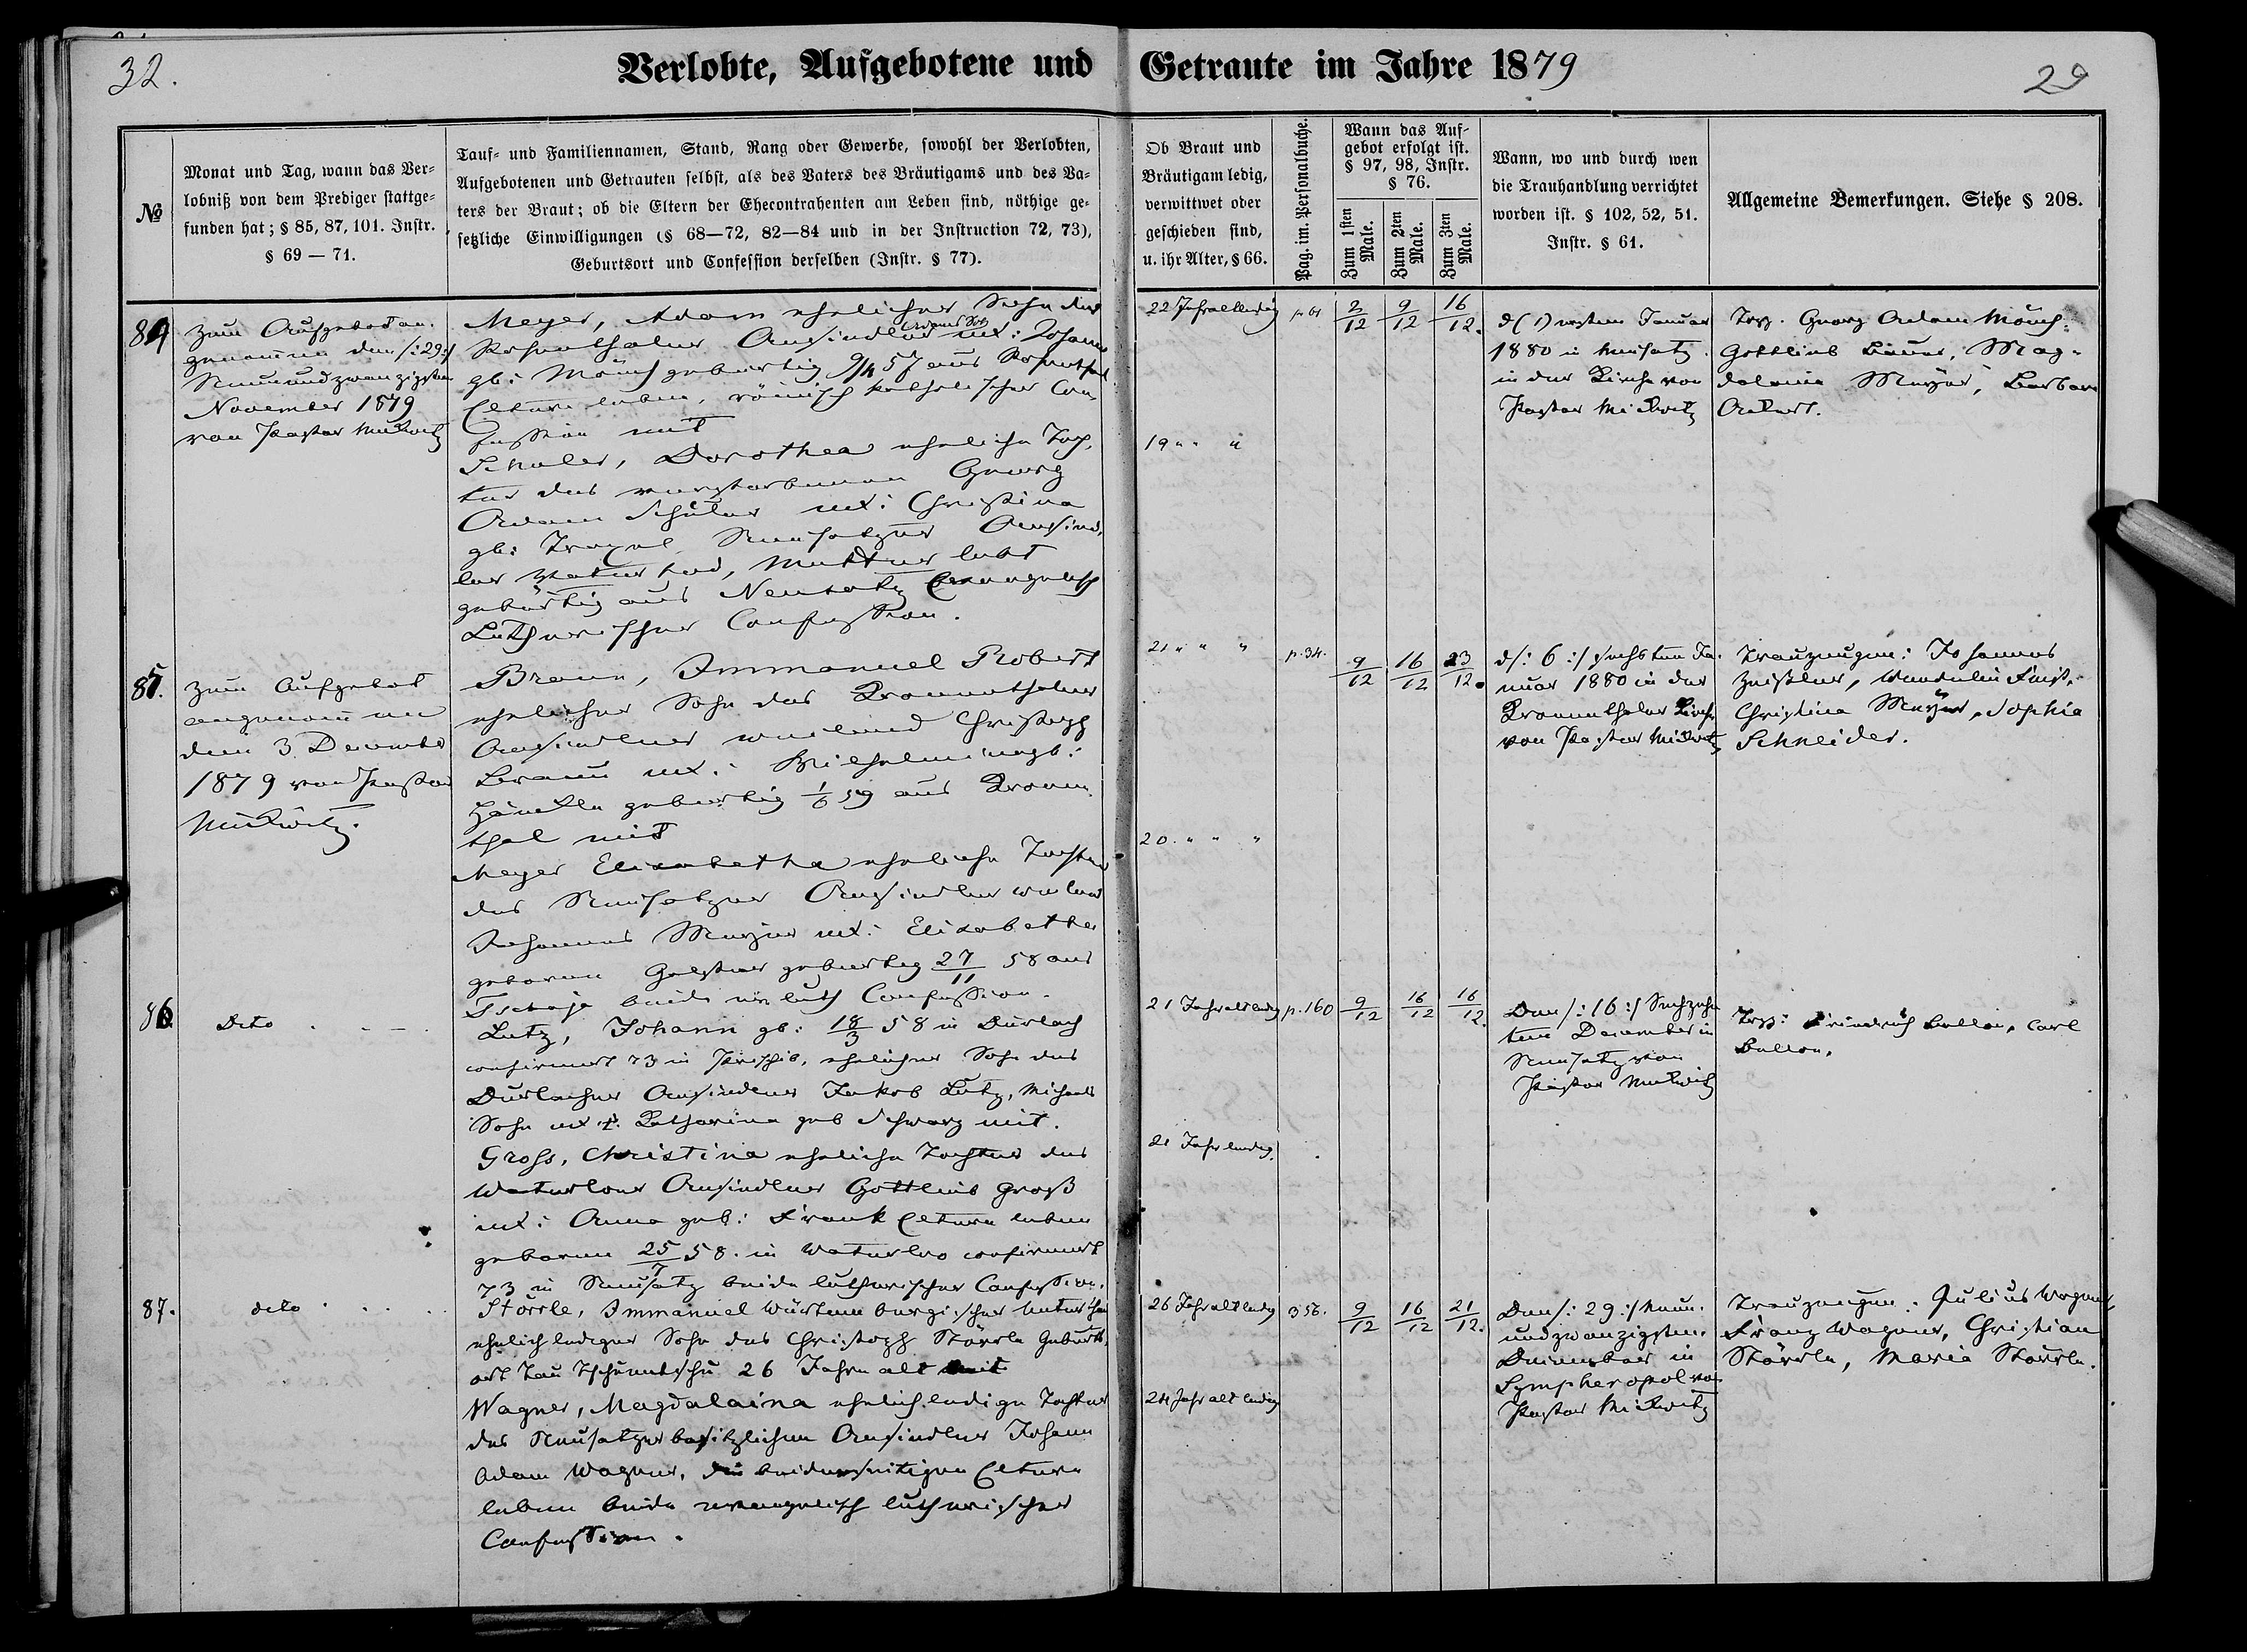 32.
Verlobte, Aufgebotene und Getraute im Jahre 1879
29
№
Monat und Tag, wann das Ver-
lobniß von dem Prediger stattge-
funden hat; § 85, 87, 101. Instr.
§ 69 — 71.
Tauf- und Familiennamen, Stand, Rang oder Gewerbe, sowohl der Verlobten,
Aufgebotenen und Getrauten selbst, als des Vaters des Bräutigams und des Va-
ters der Braut; ob die Eltern der Ehecontrahenten am Leben sind, nöthige ge-
setzliche Einwilligungen (§ 68—72, 82—84 und in der Instruction 72, 73),
Geburtsort und Confession derselben (Instr. § 77).
Ob Braut und
Bräutigam ledig,
verwittwet oder
geschieden sind,
u. ihr Alter, § 66.
Pag. im. Personalbuche.
Wann das Auf-
gebot erfolgt ist.
§ 97, 98, Instr.
§ 76.
Zum 1sten Male.
Zum 2ten Male.
Zum 3ten Male.
Wann, wo und durch wen
die Trauhandlung verrichtet
worden ist. § 102, 52, 51.
Instr. § 61.
Allgemeine Bemerkungen. Siehe § 208.
84
Zum Aufgebot an-
genommen den /:29:/
Neunundzwanzigsten
November 1879
von Pastor Mickwitz
Meyer, Adam ehelicher Sohn des
Rosenthaler Ansiedler Adams Sohn ux: Johanna
gb: Mönch gebürtig 9/4 57 aus Rosenthal
Eltern leben, römisch katholischer Con-
fession mit
Schuler, Dorothea eheliche Toch-
ter des verstorbenen Georg
Adam Schuler ux: Christina
gb: Neusatzer Ansied-
ler Vater tod, Mutter lebt
gebürtig aus Neusatz Evangelisch
Lutherischer Confession.
22 Jahr alt ledig
19 " " "
p. 61
2/12
9/12
16/12.
d (1) ersten Januar
1880 in Neusatz
in der Kirche von
Pastor Mickwitz
Trzg. Georg Adam Mönch,
Gottlieb Bauer, Mag-
dalena Meyer, Barbara
Ackert.
85.
Zum Aufgebot
angenommen
den 3. December
1879 von Pastor
Mickwitz.
Braun, Immanuel Robert
ehelicher Sohn des Kronenthaler
Ansiedler weiland Christoph
Braun ux: Wilhelmine gb:
gebürtig 1/6 59 aus Kronen-
thal mit
Meyer Elisabetha eheliche Tochter
des Neusatzer Ansiedler weiland
Johannes Meyer ux: Elisabetha
geborene gebürtig 27/11 58 aus
beide ev luth Confession.
21 " " "
20. " " "
p. 34.
9/12
16/12
23/12.
d/: 6 :/ sechsten Ja-
nuar 1880 in der
Kronenthaler Kirche
von Pastor Mickwitz
Trauzeugen: Johannes
Zeißler, Wendelin
Christina Meyer, Sophia
Schneider.
86.
Dito . . — .
Lutz, Johann gb: 18/3 58 in Durlach
confirmirt 73 in Prischib, ehelicher Sohn des
Durlacher Ansiedler Jakob Lutz, Michaels
Sohn ux : Katharina geb Schwarz mit.
Gross, Christine eheliche Tochter des
Waterlooer Ansiedler Gottlieb Groß
ux: Anna geb: Frank Eltern leben
geboren 25/7 58. in Waterloo confirmirt
73 in Neusatz beide lutherischer Confession.
21 Jahr alt ledig
21 Jahr ledig.
p. 160
9/12
16/12
16/12.
Den /: 16 :/ Sechzehn-
ten December in
Neusatz von
Pastor Mickwitz
Trzg: Friedrich Bellon, Carl
Bellon.
87.
dito . . . .
Störrle, Immanuel Würtemburgischer Unterthan
ehelich lediger Sohn des Christoph Störrle Geburts-
ort 26 Jahre alt mit
Wagner, Magdalaina ehelich ledige Tochter
des Neusatzer besitzlichen Ansiedler Johann
Adam Wagner, die beiderseitigen Eltern
leben beide evangelisch lutherischer
Confession.
26 Jahr alt ledig
24 Jahr alt ledig
356.
9/12
16/12
21/12.
Den /: 29 :/ Neun-
undzwanzigsten
December in
Sympheropol von
Pastor Mickwitz
Trauzeugen: Julius Wagner,
Franz Wagner, Christian
Störrle, Maria Störrle.